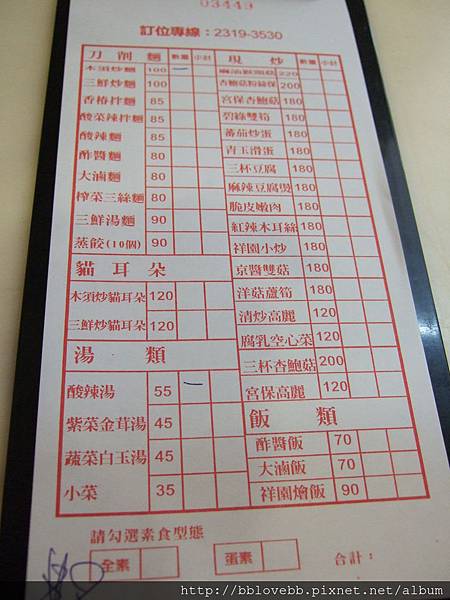 03443
訂位專線：2319-3530
刀削麵 數量 小計
木須炒麵 100 一
三鮮炒麵 100
香椿拌麵 85
酸菜辣拌麵 85
酸辣麵 85
酢醬麵 80
大滷麵 80
榨菜三絲麵 80
三鮮湯麵 90
蒸餃(10個) 90
貓耳朵
木須炒貓耳朵 120
三鮮炒貓耳朵 120
湯類
酸辣湯 55 一
紫菜金茸湯 45
蔬菜白玉湯 45
小菜 35
現炒 數量 小計
麻油猴頭菇 220
杏鮑菇粉絲保 200
宮保杏鮑菇 180
碧綠雙筍 180
蕃茄炒蛋 180
青玉滑蛋 180
三杯豆腐 180
麻辣豆腐煲 180
脆皮嫩肉 180
紅辣木耳絲 180
祥園小炒 180
京醬雙菇 180
洋菇蘆筍 180
清炒高麗 120
腐乳空心菜 120
三杯杏鮑菇 200
宮保高麗 120
飯類
酢醬飯 70
大滷飯 70
祥園燴飯 90
請勾選素食型態
全素 蛋素 合計：
http://bblovebb.pixnet.net/album